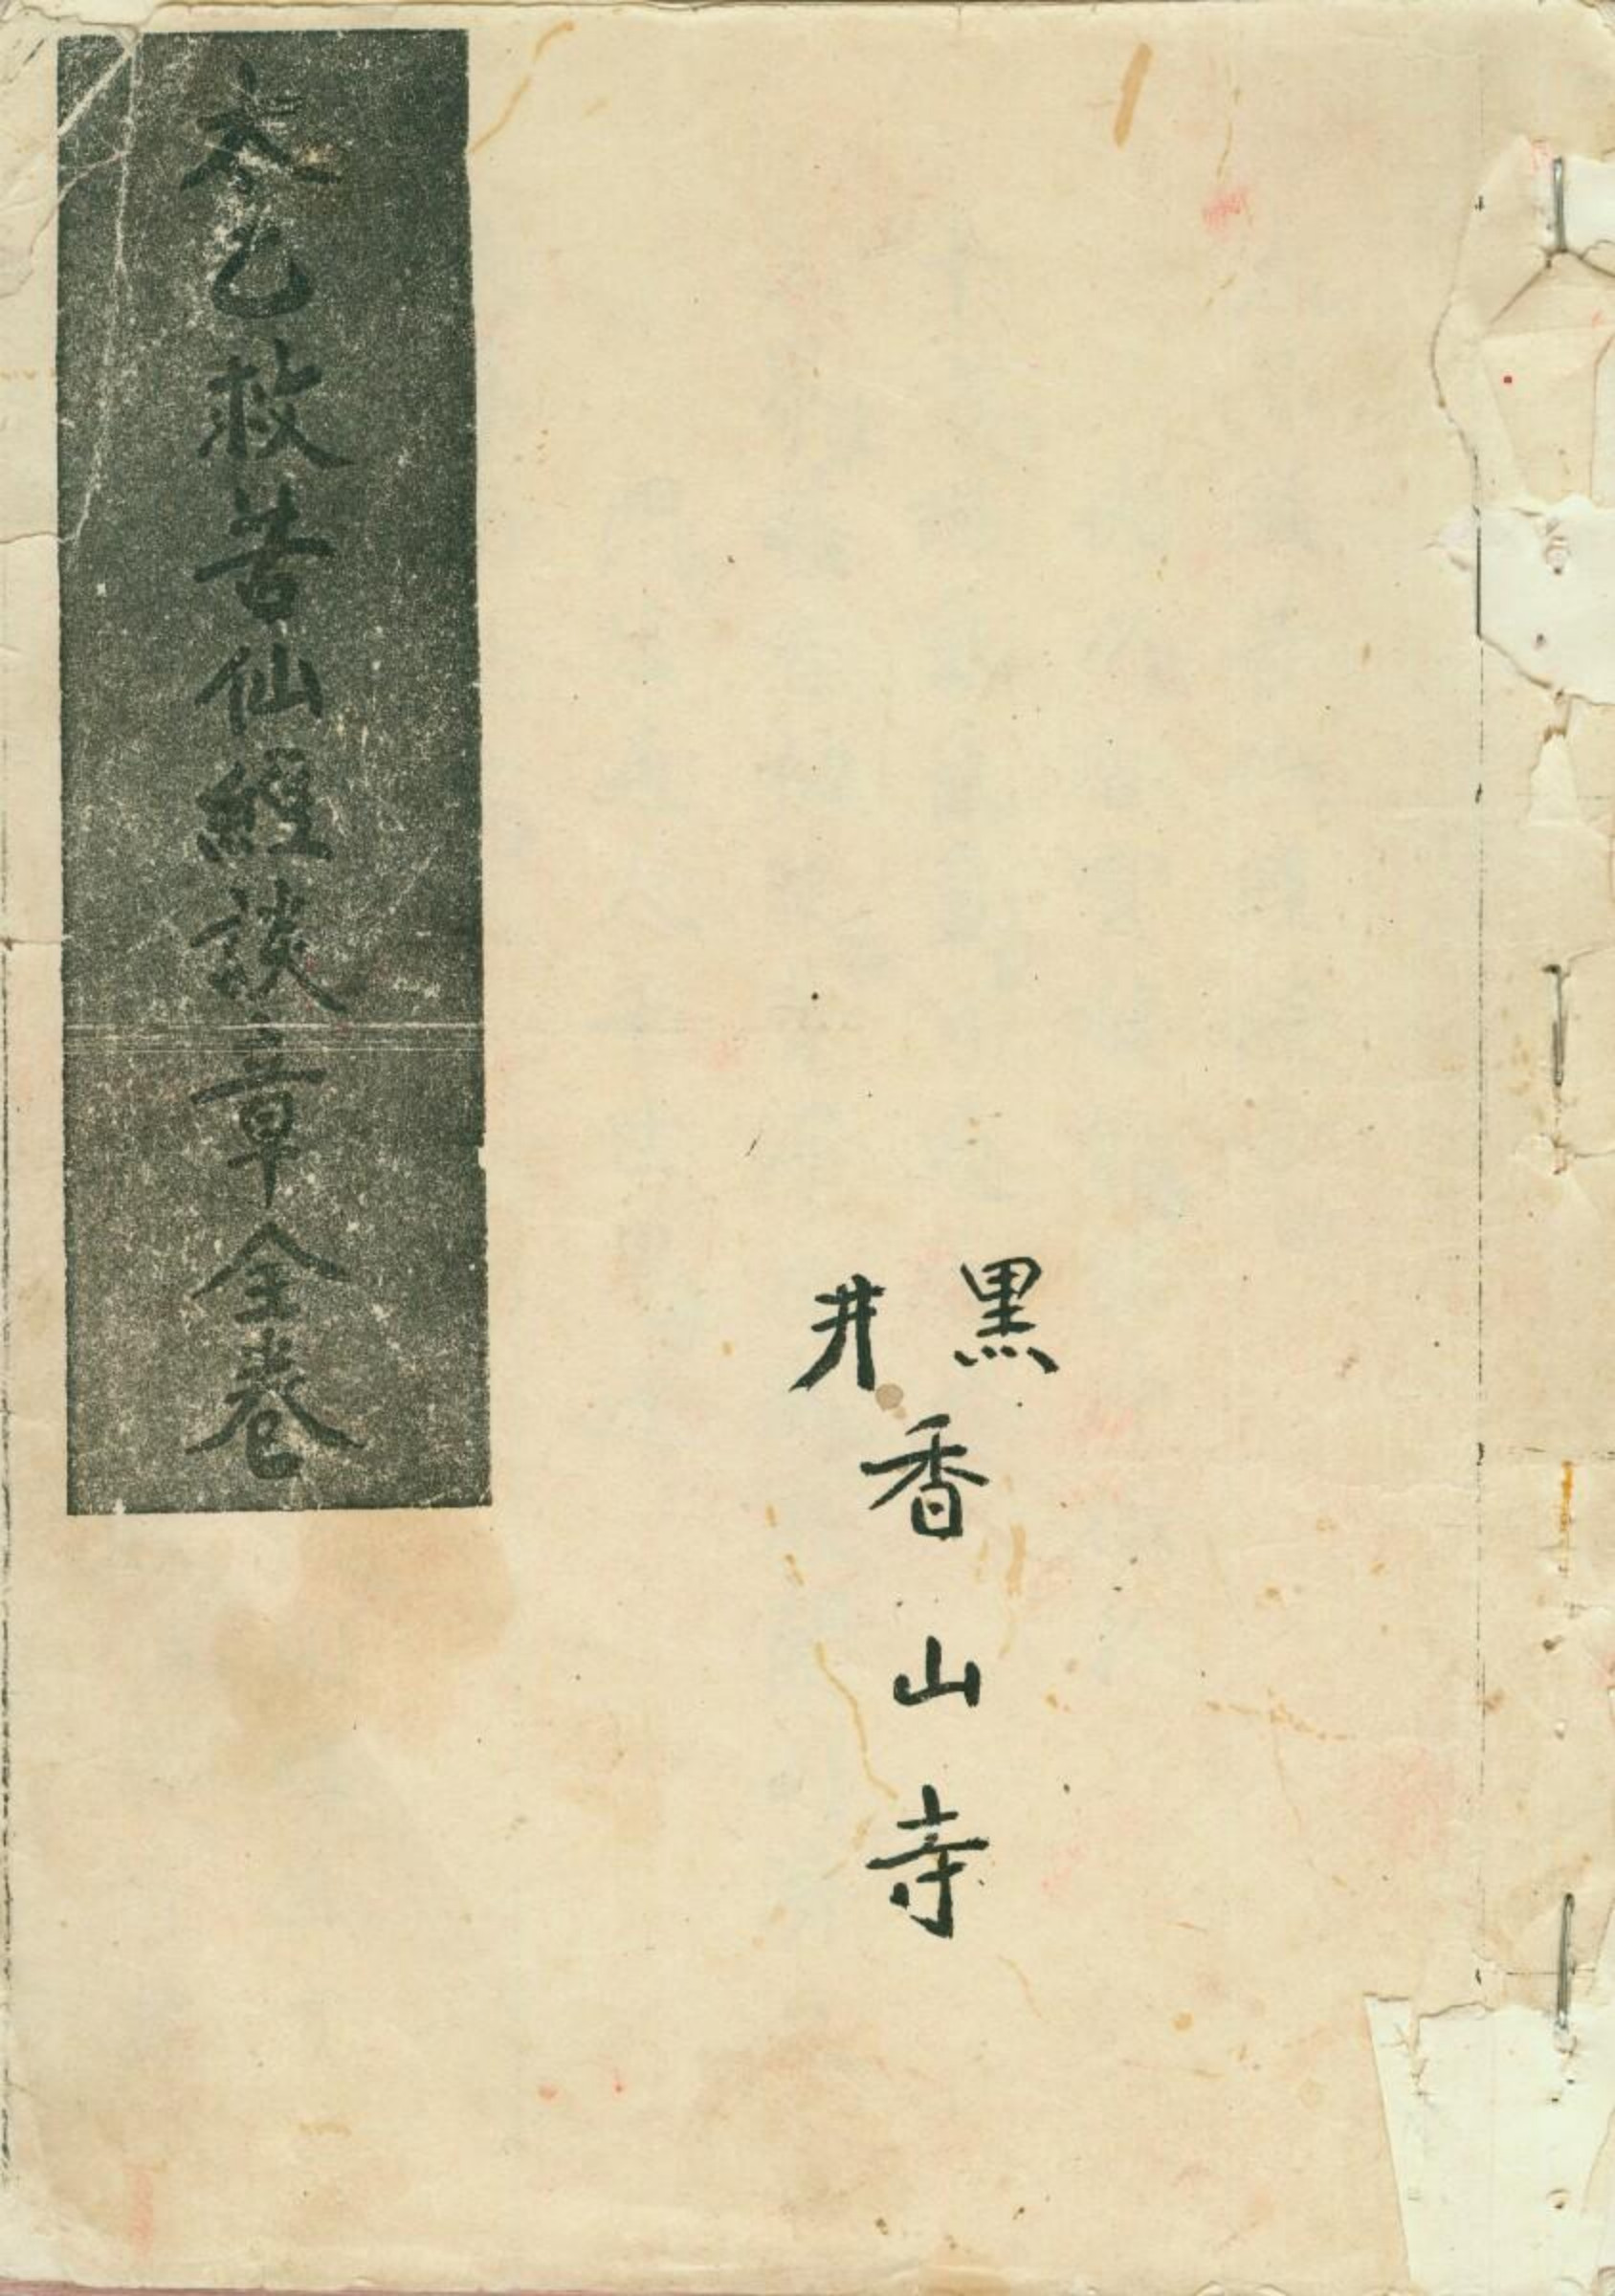 黑井
香山寺
太乙救苦仙經談章全卷